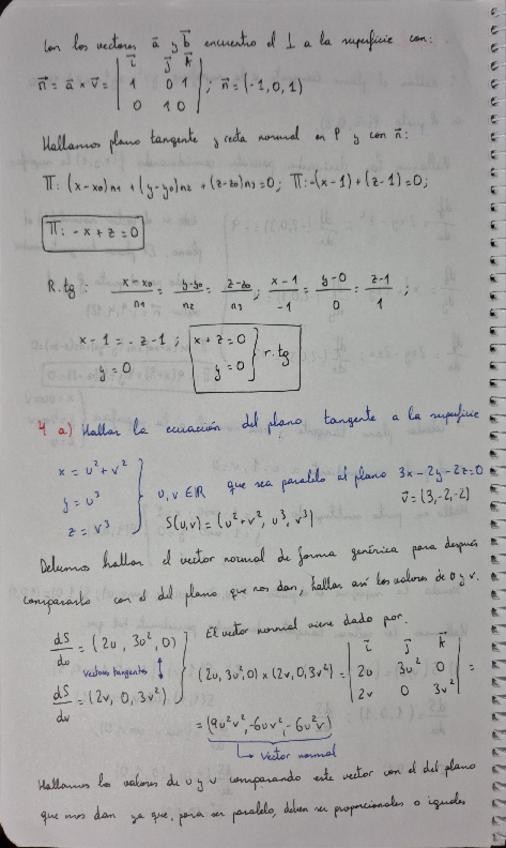 Con los vectores a⃗ y b⃗ encuentro el ⊥ a la superficie con:
n⃗ = a⃗ × v⃗ = | i⃗ j⃗ k⃗ |
| 1 0 1 | ; n⃗ = (-1, 0, 1)
| 0 1 0 |
Hallamos plano tangente y recta normal en P y con n⃗:
Π: (x-x₀)n₁ + (y-y₀)n₂ + (z-z₀)n₃ = 0; Π: -(x-1) + (z-1) = 0;
Π: -x + z = 0
R.tg: (x-x₀)/n₁ = (y-y₀)/n₂ = (z-z₀)/n₃ ; (x-1)/-1 = (y-0)/0 = (z-1)/1 ;
x - 1 = -z - 1 ; x + z = 0
y = 0 y = 0 } r.tg
4 a) Hallar la ecuación del plano tangente a la superficie
x = u² + v²
y = u³ } u, v ∈ ℝ que sea paralelo al plano 3x - 2y - 2z = 0
z = v³ S(u,v) = (u² + v², u³, v³) v⃗ = (3, -2, -2)
Debemos hallar el vector normal de forma genérica para después
compararlo con el del plano que nos dan, hallar así los valores de u y v.
dS/du = (2u, 3u², 0) El vector normal viene dado por:
Vectores tangentes ↕ (2u, 3u², 0) × (2v, 0, 3v²) = | i⃗ j⃗ k⃗ |
| 2u 3u² 0 | =
dS/dv = (2v, 0, 3v²) | 2v 0 3v² |
= (9u²v², -6uv², -6u²v)
↳ Vector normal
Hallamos los valores de u y v comparando este vector con el del plano
que nos dan ya que, para ser paralelo, deben ser proporcionales o iguales